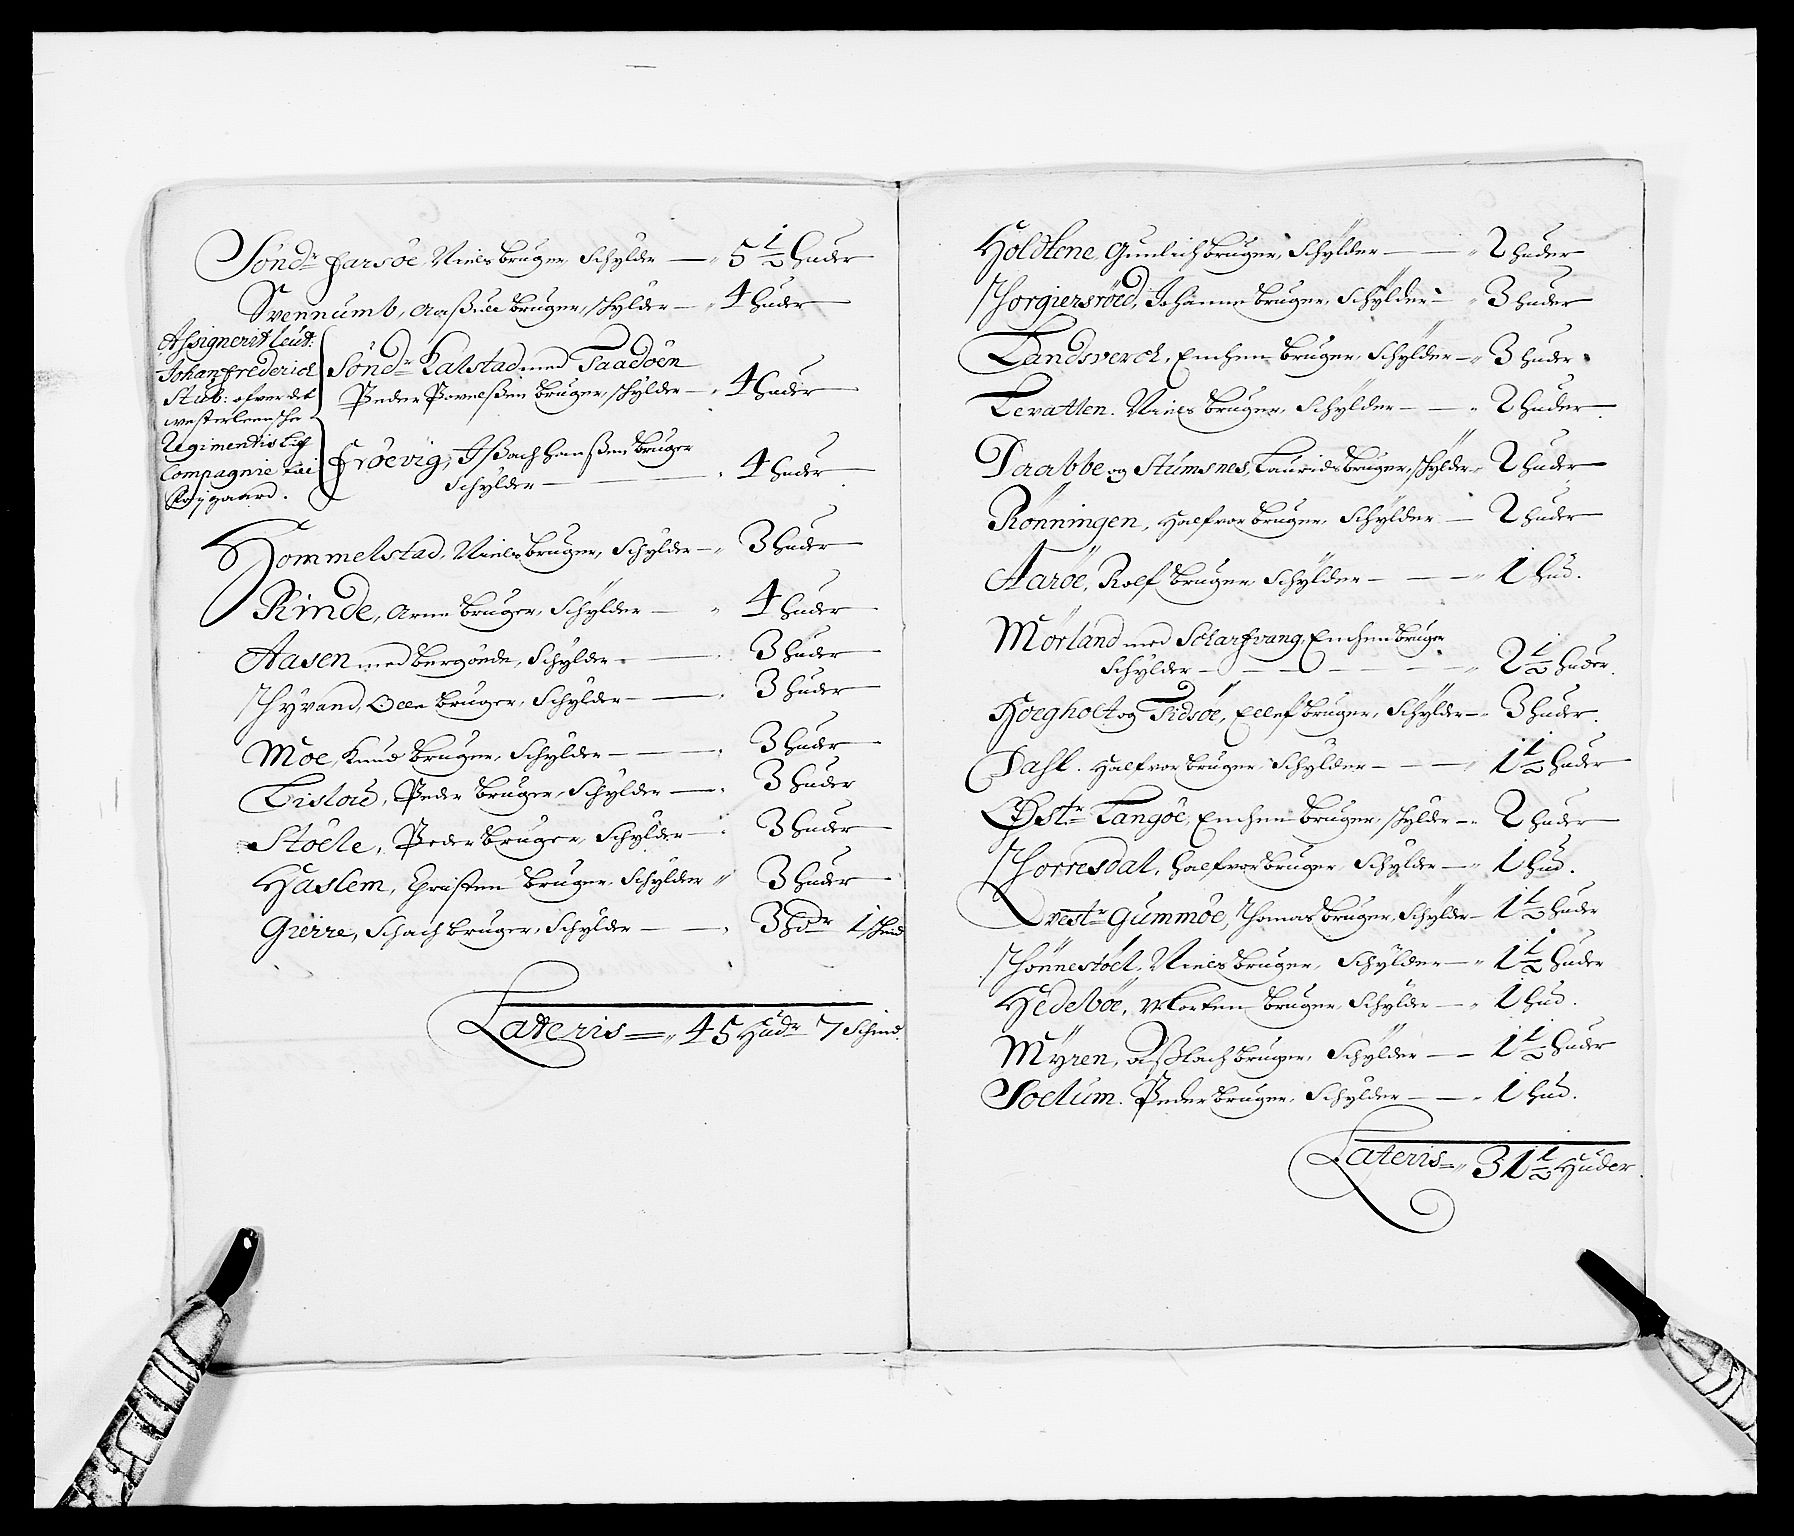 Söndr Farsöe Niels bruger Schylder — 5 1/2 huder
Svennumb, Aassull bruger, schylder — 4 huder
Assignerit leut:
Johan Frederich
Stub: ofver det
westerleensche
Regimentis lif
Compagnie
Söndr Kalstad med Taadöen
Peder Povelssen bruger, schylder — 4 huder
Fröevig, Issach Hanssen bruger
Schylder — 4 huder
Hommelstad, Niels bruger, Schylder — 3 huder
Rinde, Arne bruger, Schylder — 4 huder
Aasen med bergöede, Schylder — 3 huder
Thyvand, Olle bruger, Schylder — 3 huder
Moe, Knud bruger, Schylder — 3 huder
Listoul, Peder bruger, Schylder — 3 huder
Stoele, Peder bruger, Schylder — 3 huder
Haslem, Christen bruger, Schylder 3 huder
Gierre, Isach bruger, Schylder — 3 hdr 1 schind
Lateris = 45 Hudr 7 Schind.
Holttene, Gunlich bruger, Schylder — 2 huder
Thorgiersröed, Johanne bruger, Schylder — 3 huder
Landsverch, Enchen bruger, Schylder — 3 huder
Levatten. Niels bruger, Schylder — 2 huder
Daabbe og Stumsnes, Laurids bruger, schylder 2 huder
Rönningen, Halfvor bruger, Schylder — 2 huder
Aaröe, Rolf bruger, Schylder — 1 hud.
Mörland med Scharfvang, Enchen bruger
Schylder — 2 1/2 huder.
Hoegholt og Tidsöe, Ellef bruger, Schylder — 3 huder.
Dahl. Halfvor bruger, Schylder — 1 1/2 huder
Östr Tangöe, Enchen bruger, schylder — 2 huder
Thorresdal, Halfvor bruger, Schylder — 1 hud.
Vestr Gummöe, Thomas bruger, Schylder — 1 1/2 huder
Thönnestöel, Niels bruger, Schylder — 1 1/2 huder
Hedelböe, Morten bruger, Schylder — 1 hud.
Myren, Asslach bruger, Schylder — 1 1/2 huder
Soelum. Peder bruger, Schylder — 1 hud.
Lateris = 31 1/2 Huder.